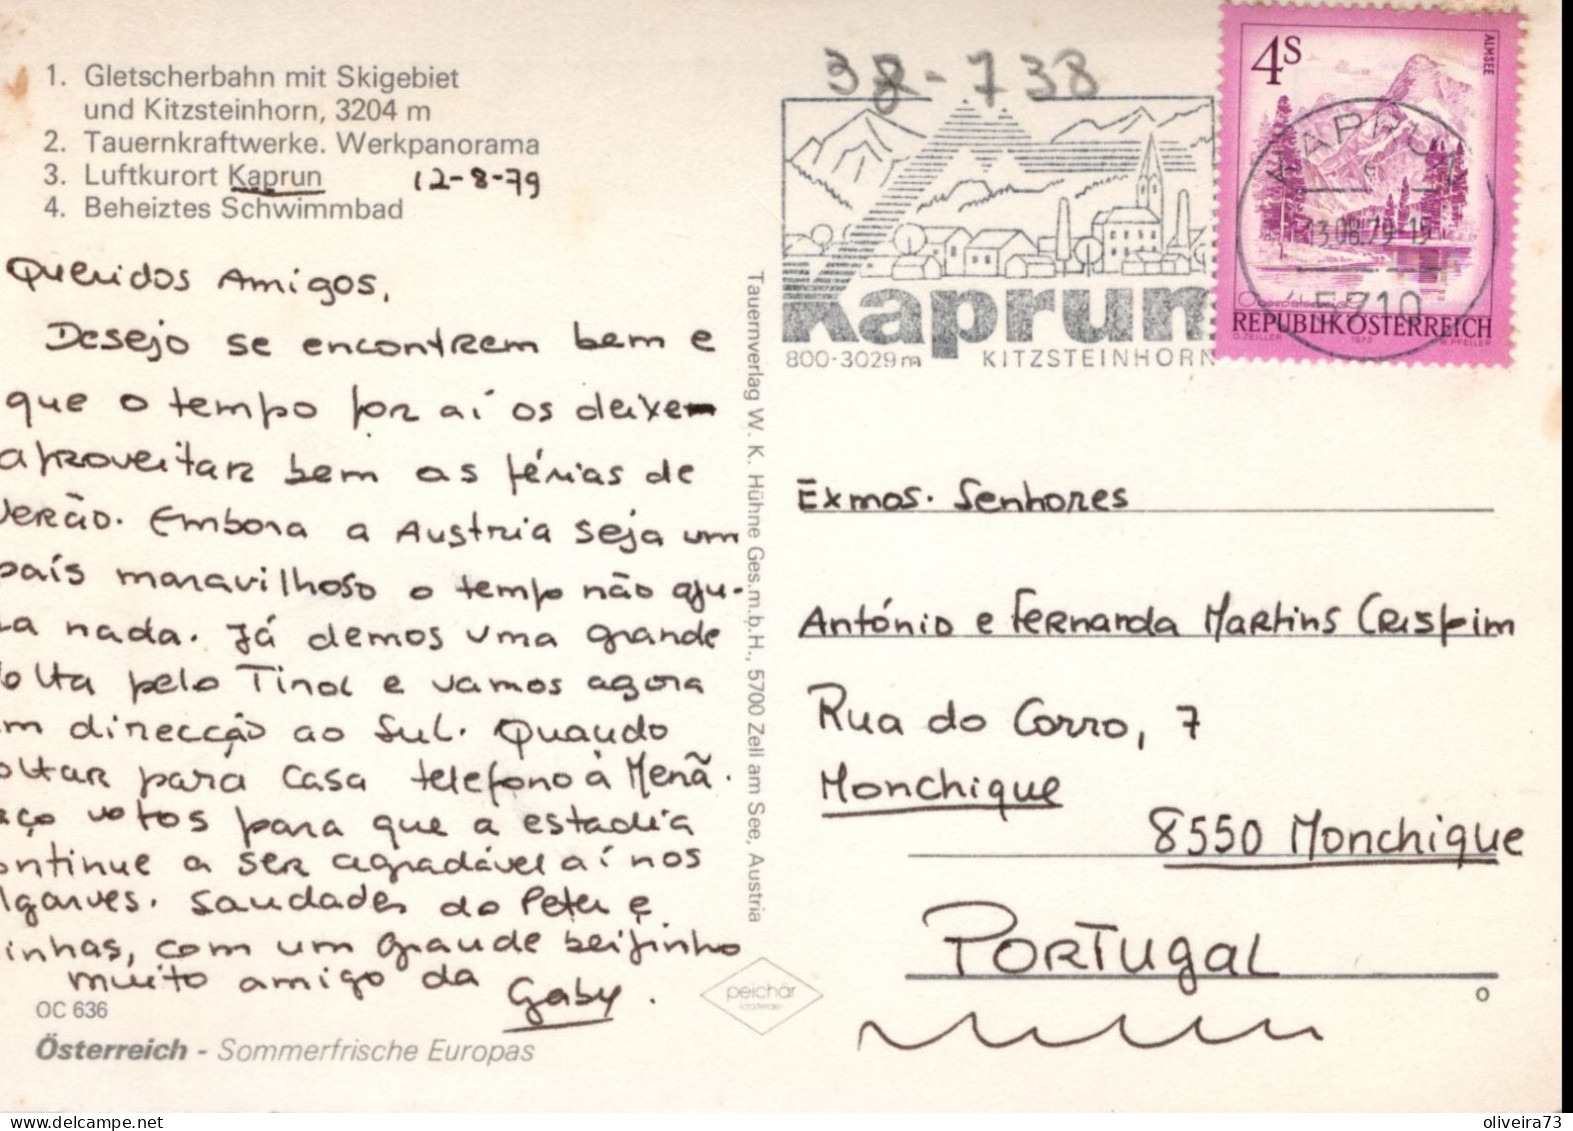 1. Gletscherbahn mit Skigebiet
und Kitzsteinhorn, 3204 m
2. Tauernkraftwerke. Werkpanorama
3. Luftkurort Kaprun 12-8-79
4. Beheiztes Schwimmbad
Queridos Amigos,
Desejo se encontrem bem e
que o tempo por aí os deixe
aproveitar bem as férias de
verão. Embora a Austria seja um
país maravilhoso o tempo não aju-
da nada. Já demos uma grande
volta pelo Tirol e vamos agora
em direcção ao Sul. Quando
voltar para casa telefono à Menã.
Faço votos para que a estadia
continue a ser agradável aí nos
Algarves. Saudades do Peter e
minhas, com um grande beijinho
muito amigo da
Gaby.
OC 636
Österreich - Sommerfrische Europas
Tauernverlag W. K. Hühne Ges.m.b.H., 5700 Zell am See, Austria
peichär
38-738
Kaprun
800-3029m KITZSTEINHORN
4S
ALMSEE
KAPRUN
13.08.79-15
5710
Oberösterreich
REPUBLIK ÖSTERREICH
O.ZEILLER 1973 W.PFEILER
Exmos. Senhores
António e Fernanda Martins Crispim
Rua do Corro, 7
Monchique
8550 Monchique
PORTUgAL
oliveira73